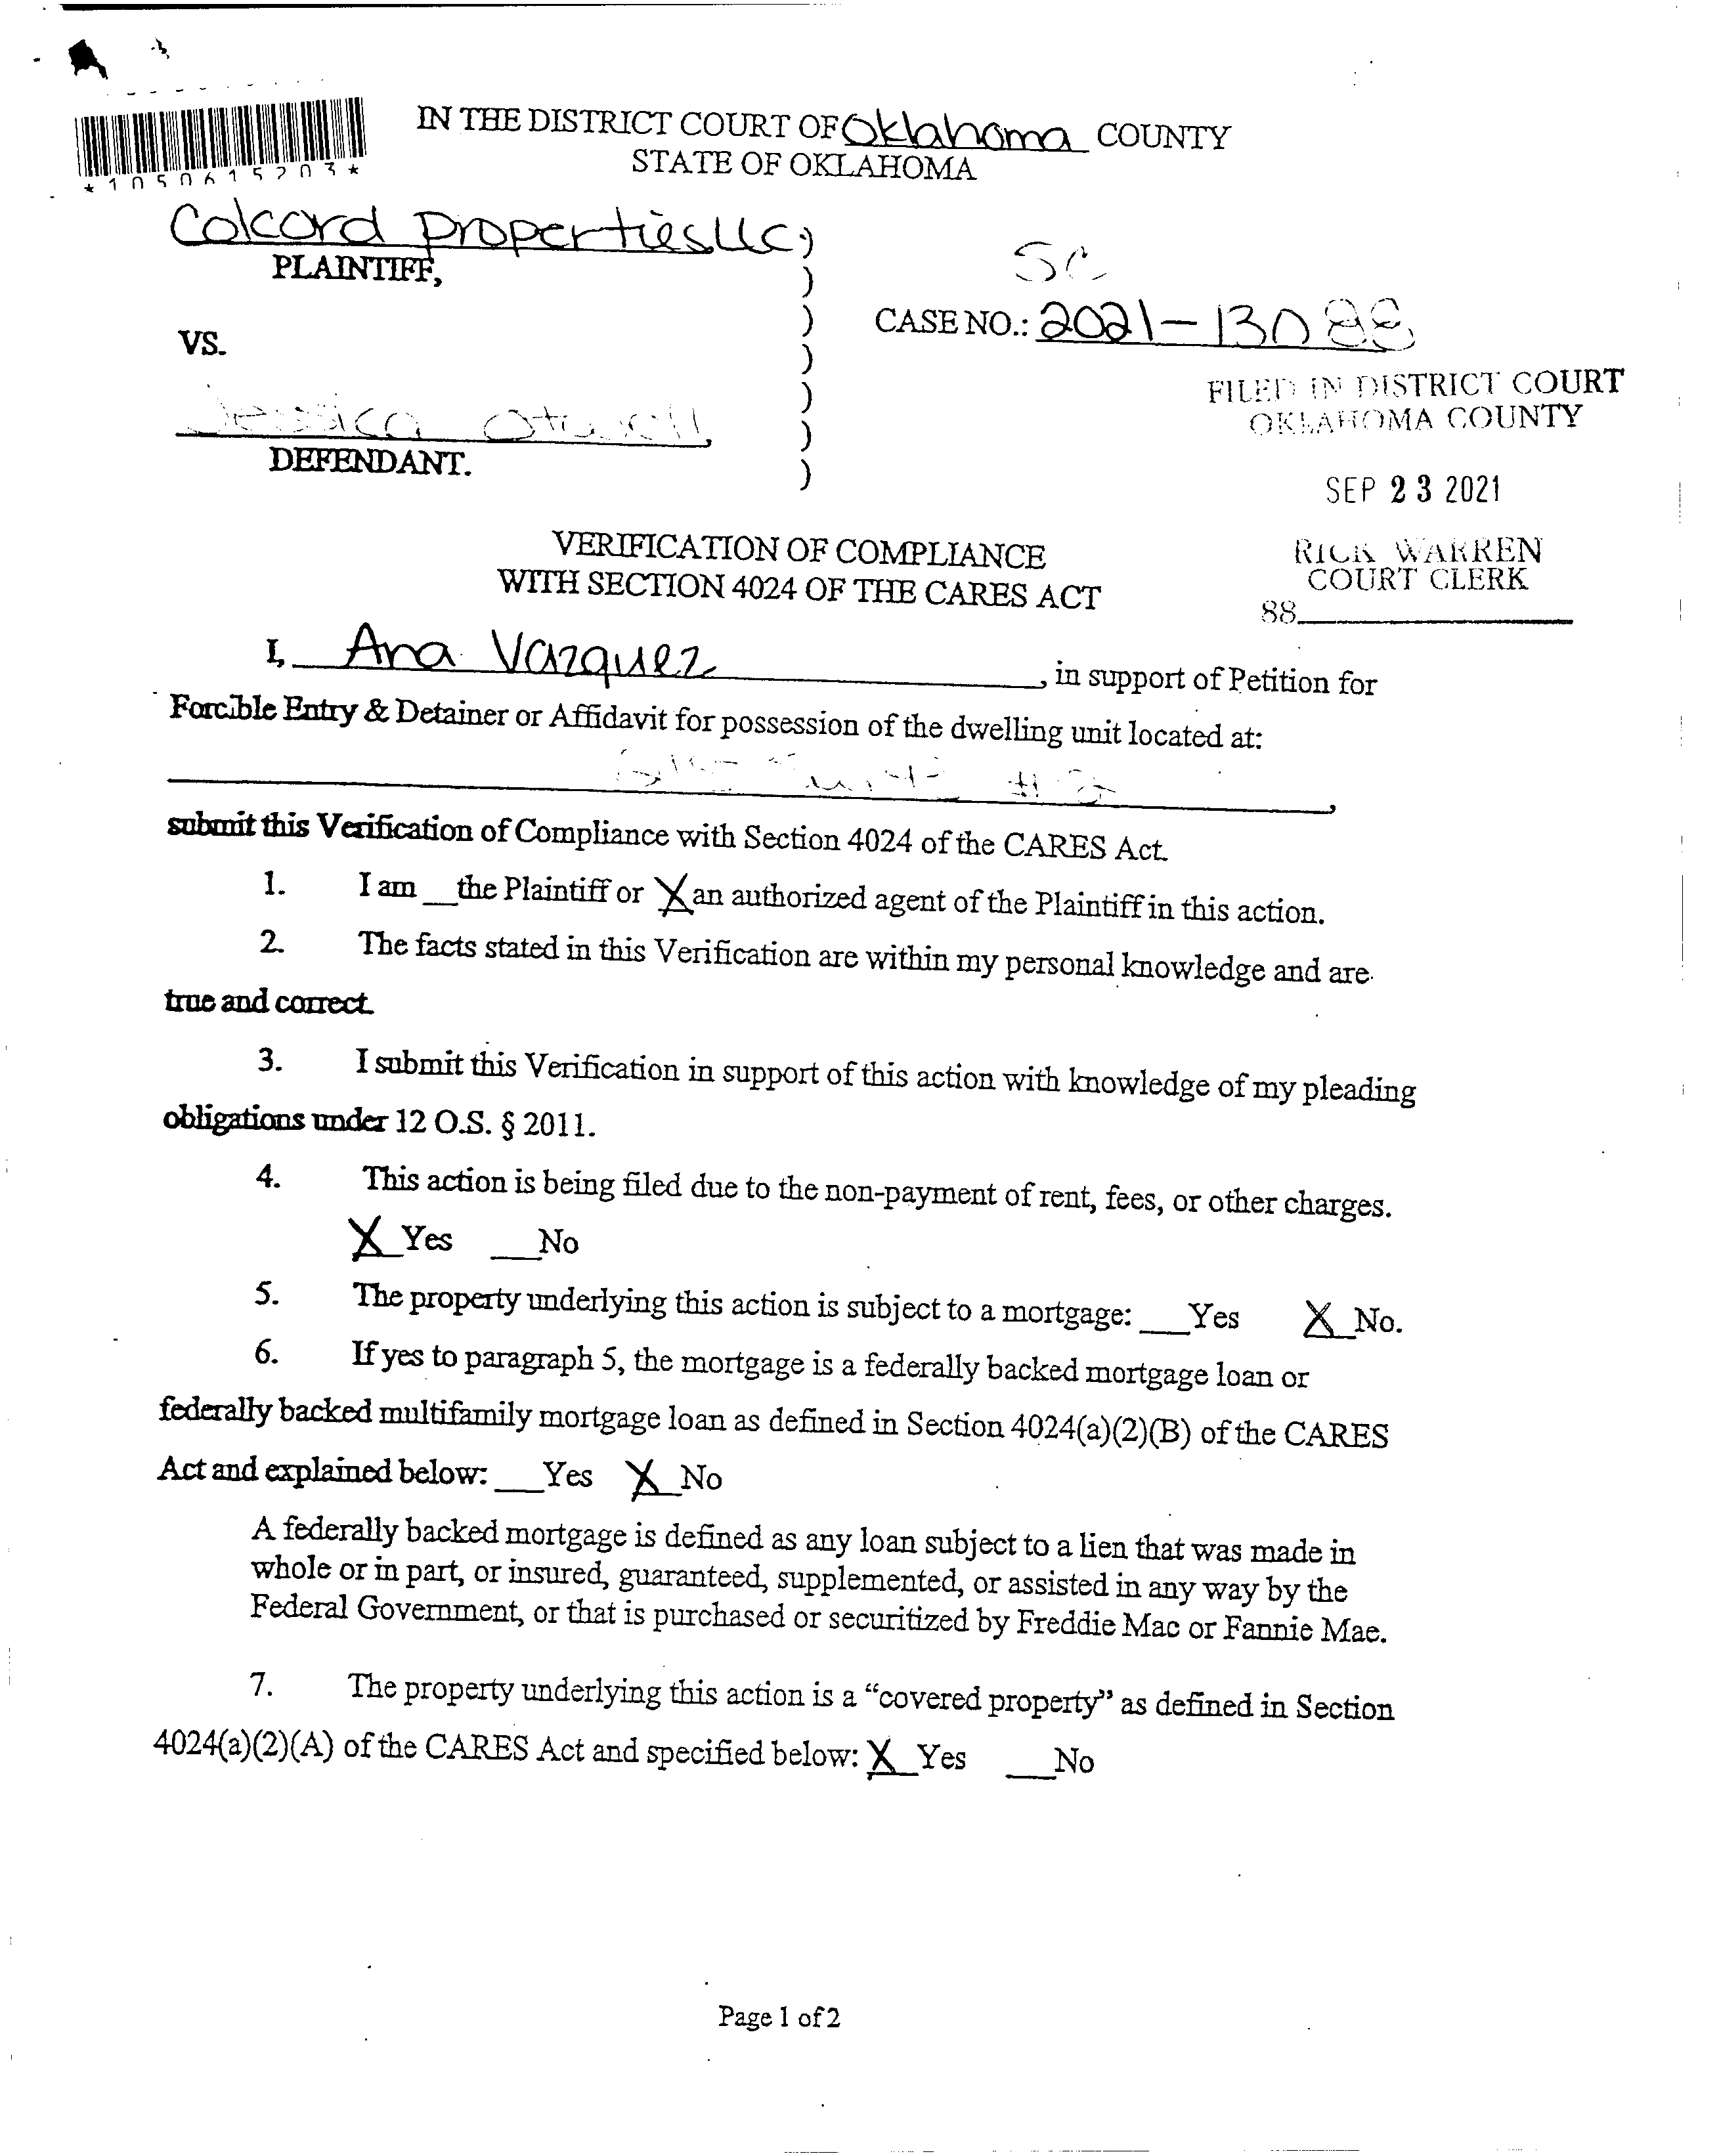 IN THE DISTRICT COURT OF Oklahoma COUNTY
STATE OF OKLAHOMA
*1050615203*
Colcord Properties LLC,)
PLAINTIFF, )
SC
VS. ) CASE NO.: 2021-13088
)
)
Jessica Otwell, )
DEFENDANT. )
FILED IN DISTRICT COURT
OKLAHOMA COUNTY
SEP 23 2021
RICK WARREN
COURT CLERK
88
VERIFICATION OF COMPLIANCE
WITH SECTION 4024 OF THE CARES ACT
I, Ana Vazquez, in support of Petition for
Forcible Entry & Detainer or Affidavit for possession of the dwelling unit located at:
submit this Verification of Compliance with Section 4024 of the CARES Act.
1. I am __the Plaintiff or X an authorized agent of the Plaintiff in this action.
2. The facts stated in this Verification are within my personal knowledge and are
true and correct.
3. I submit this Verification in support of this action with knowledge of my pleading
obligations under 12 O.S. § 2011.
4. This action is being filed due to the non-payment of rent, fees, or other charges.
X Yes ___No
5. The property underlying this action is subject to a mortgage: ___Yes X No.
6. If yes to paragraph 5, the mortgage is a federally backed mortgage loan or
federally backed multifamily mortgage loan as defined in Section 4024(a)(2)(B) of the CARES
Act and explained below: ___Yes X No
A federally backed mortgage is defined as any loan subject to a lien that was made in
whole or in part, or insured, guaranteed, supplemented, or assisted in any way by the
Federal Government, or that is purchased or securitized by Freddie Mac or Fannie Mae.
7. The property underlying this action is a “covered property” as defined in Section
4024(a)(2)(A) of the CARES Act and specified below: X Yes ___No
Page 1 of 2